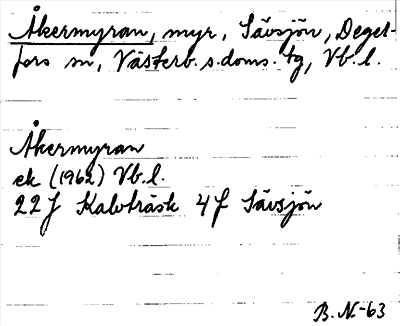 Åkermyran, myr, Sävsjön, Degel-
fors sn, Västerb. s. doms. tg, Vb. l.
Åkermyran
ek (1962) Vb. l.
22 J Kalvträsk 4 f Sävsjön
B. N.-63